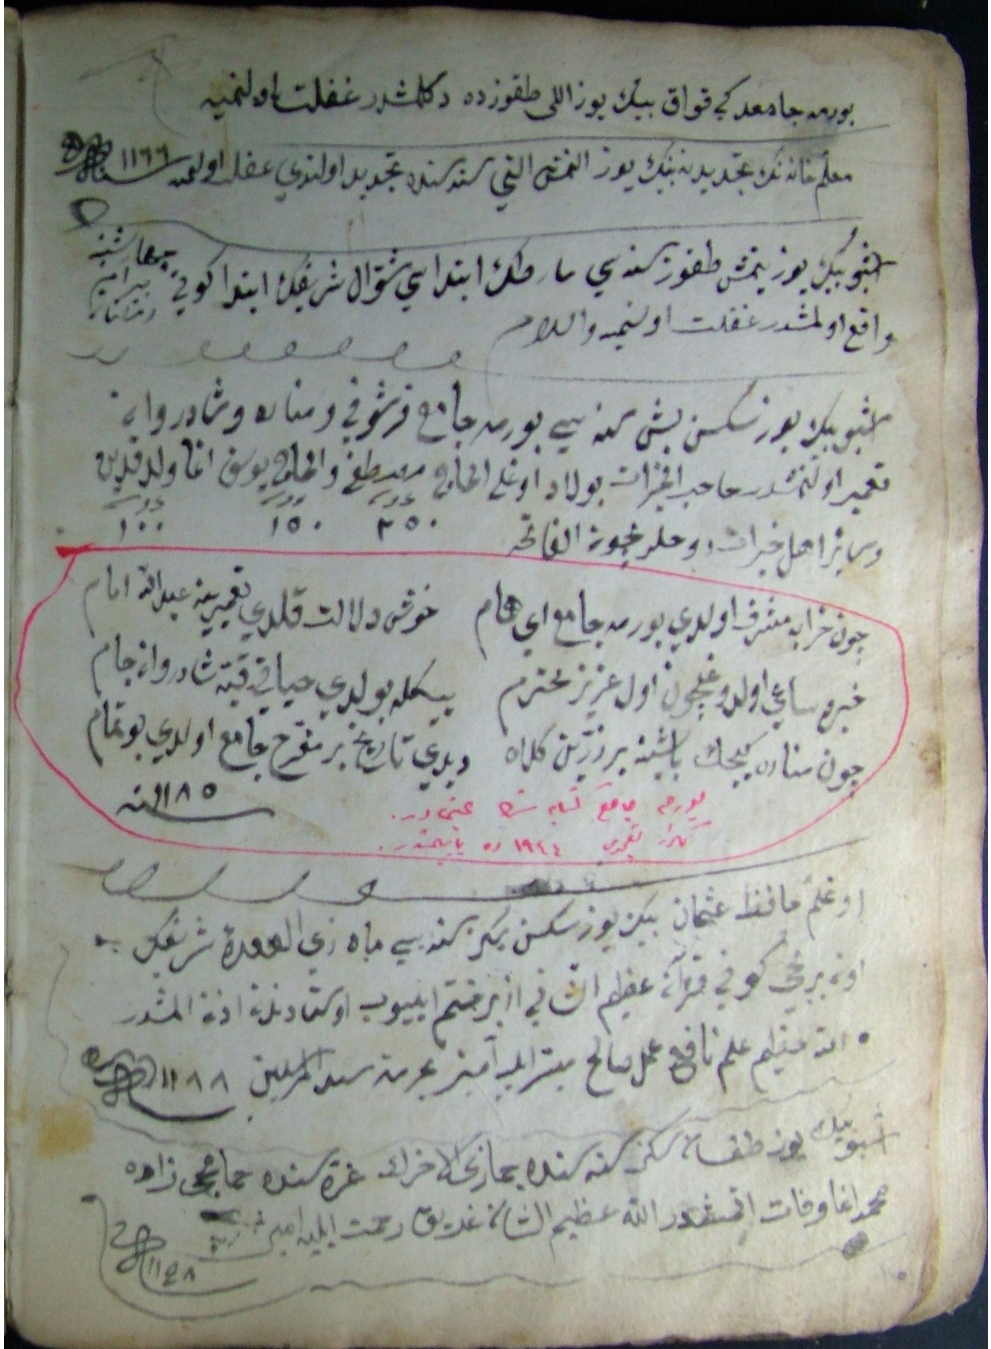 بورمه جامعدكي قواق بيك يوز اللى طقوزده دكلمشدر غفلت اولنميه
معلم خانه نك تجديدينه بيك يوز التمش التي سنه سنده تجديد اولندي غفلت اولنميه سنه ١١٦٦
اشبو بيك يوز يتمش طقوز سنه سي مارطك ابتداسي شوال شريفك ابتدا كوني چهارشنبه
واقع اولمشدر غفلت اولنميه والسلام
اشبو بيك يوز سكسن بش سنه سي بورمه جامع قرشوني و مناره و شادرواني
تعمير اولنمشدر صاحب الخيرات بولاد اوغلى الحاج مصطفى والحاج يوسف اغا ولد
٢٥٠ ١٥٠ ١٠٠
وسائر اهل خيرات روحلريچون الفاتحه
چون خرابه مشرف اولدي بورمه جامع اي همام خوش دلالت قلدي تعميرينه عبدالله امام
خيره ساعي اولدوغيچون اول عزيز محترم بيكله بولدي حياتي قبه شادروان جام
چون مناره كيجك باشينه بر زرين كلاه ديدي تاريخ بر مفرح جامع اولدي بو تمام
سنه ١١٨٥
بورمه جامع
١٩٤٤ ده
اوغلم حافظ عثمان بيك يوز سكسن سكز سنه سي ماه ذي القعدة شريفك
اون برنجي كوني قرآن عظيم الشاني ازبر ختم ايليوب استادندن اذن المشدر
الله عظيم علم نافع عمل صالح ميسر ايليه آمين بحرمة سيد المرسلين ١١٨٨
اشبو بيك يوز طقسان سكز سنه سنده جمازي الاخرك غرة سنده حمامجي زاده
محمد اغا وفات اتمشدر الله عظيم الشان غريق رحمت ايليه امين
١١٩٨